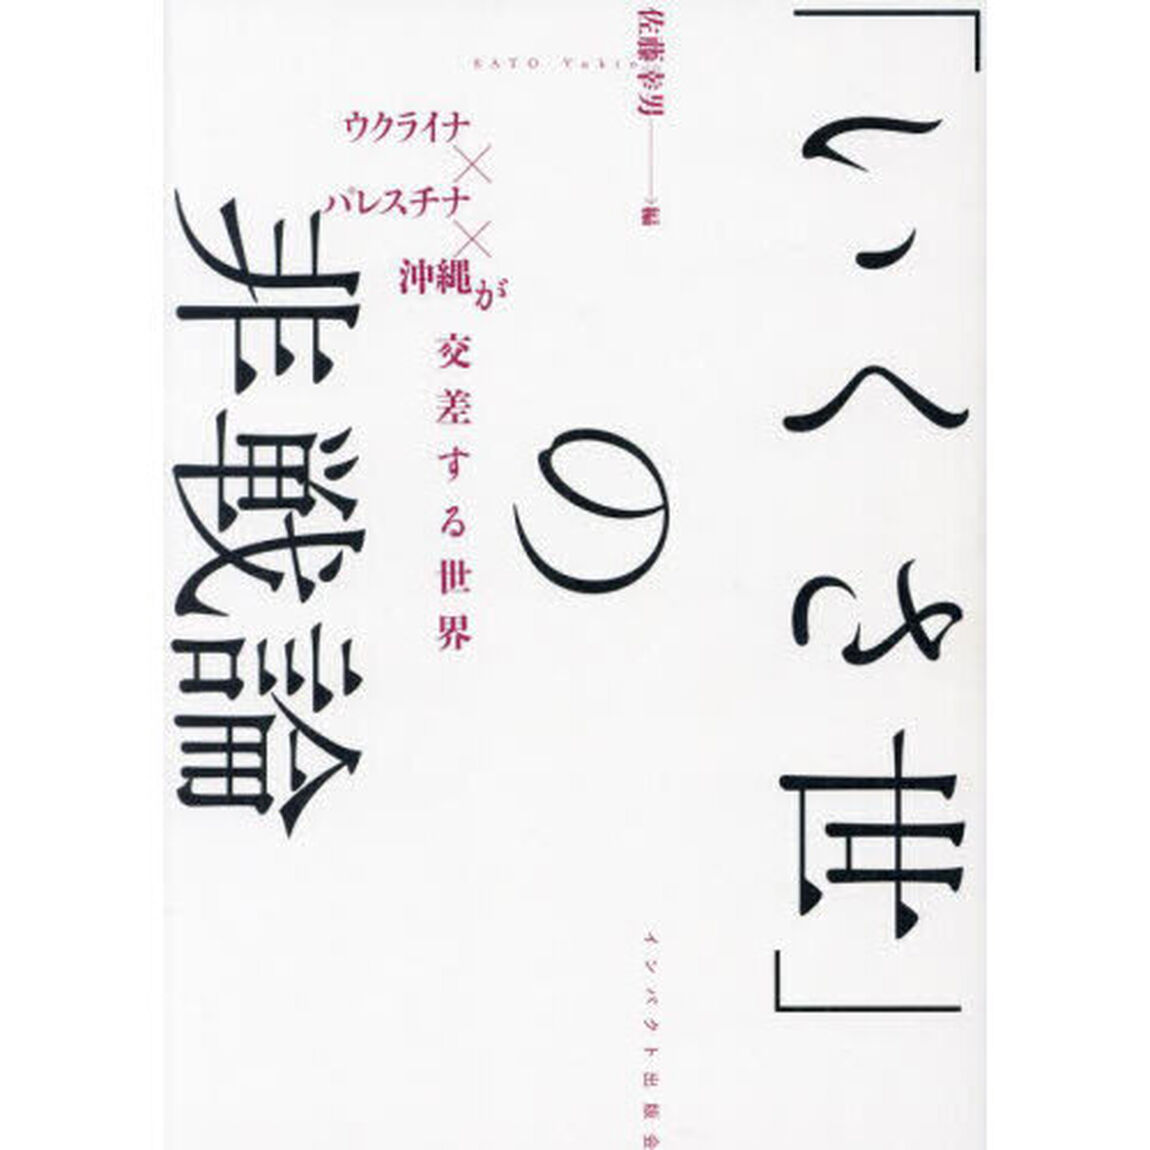 「いくさ世」
の
非戦論
ウクライナ
×
パレスチナ
×
沖縄が
交差する世界
佐藤幸男――編
SATO Yukio
インパクト出版会